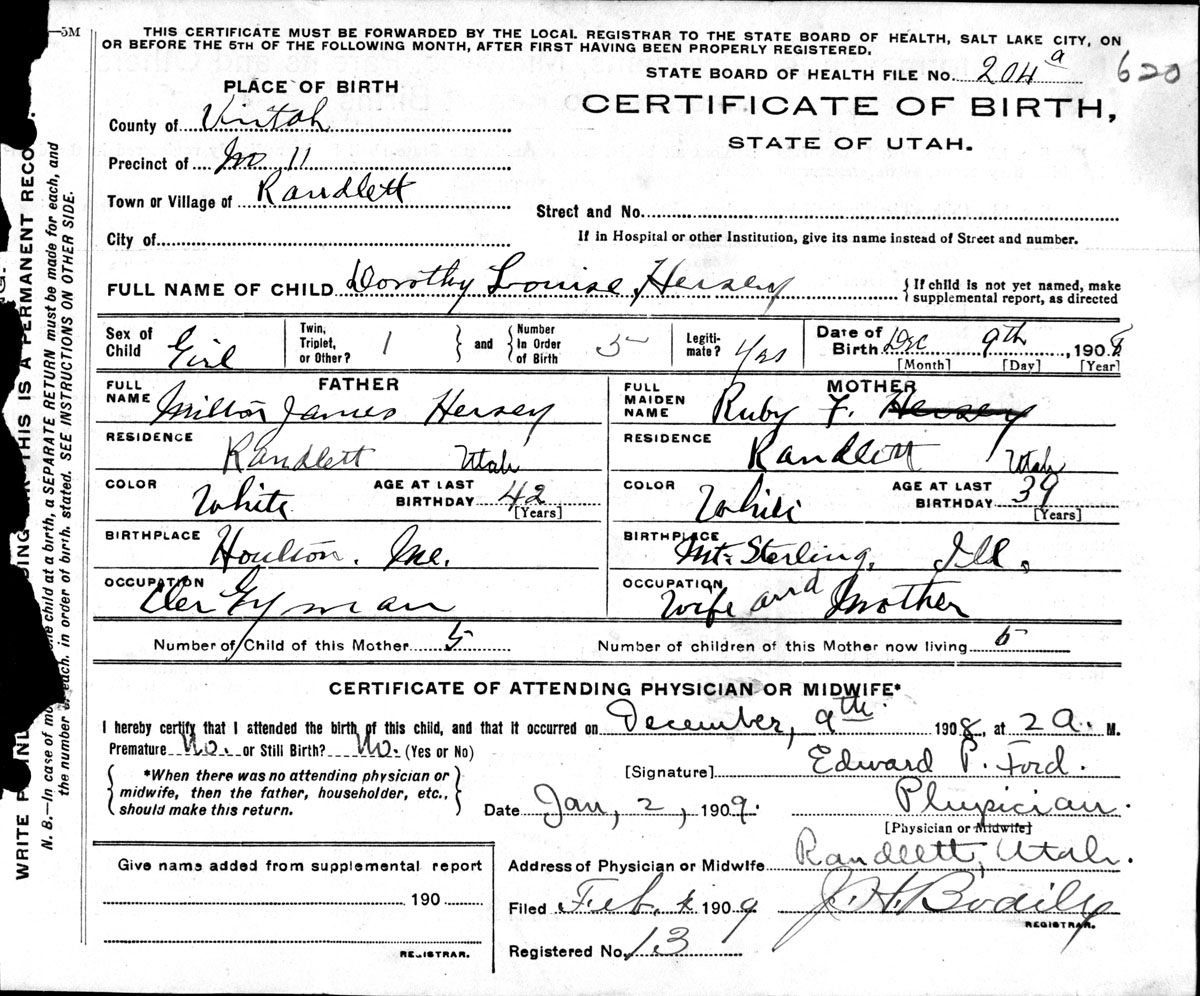 —5M
THIS CERTIFICATE MUST BE FORWARDED BY THE LOCAL REGISTRAR TO THE STATE BOARD OF HEALTH, SALT LAKE CITY, ON
OR BEFORE THE 5TH OF THE FOLLOWING MONTH, AFTER FIRST HAVING BEEN PROPERLY REGISTERED.
STATE BOARD OF HEALTH FILE No. 204 a 620
PLACE OF BIRTH
CERTIFICATE OF BIRTH,
STATE OF UTAH.
County of Uintah
Precinct of No 11
Town or Village of Randlett
Street and No.
City of
If in Hospital or other Institution, give its name instead of Street and number.
FULL NAME OF CHILD Dorothy Louise Hersey
{ If child is not yet named, make
supplemental report, as directed
Sex of Child Girl
Twin, Triplet, or Other? 1 } and { Number In Order of Birth 5
Legiti-mate? Yes
Date of Birth Dec 9th, 1908
[Month] [Day] [Year]
FATHER
FULL NAME Milton James Hersey
RESIDENCE Randlett Utah
COLOR White
AGE AT LAST BIRTHDAY 42
[Years]
BIRTHPLACE Houlton. Me.
OCCUPATION Clergyman
MOTHER
FULL MAIDEN NAME Ruby F. Hersey
RESIDENCE Randlett Utah
COLOR White
AGE AT LAST BIRTHDAY 39
[Years]
BIRTHPLACE Mt. Sterling, Ill.
OCCUPATION Wife and Mother
Number of Child of this Mother 5
Number of children of this Mother now living 5
CERTIFICATE OF ATTENDING PHYSICIAN OR MIDWIFE*
I hereby certify that I attended the birth of this child, and that it occurred on December, 9th. 1908, at 2 A. M.
Premature No. or Still Birth? No. (Yes or No)
{ *When there was no attending physician or
midwife, then the father, householder, etc.,
should make this return. }
[Signature] Edward P. Ford.
Date Jan, 2, 1909. Physician.
[Physician or Midwife]
Address of Physician or Midwife Randlett, Utah.
Give name added from supplemental report
190
REGISTRAR.
Filed Feb. 1909 J. H. Bodily
REGISTRAR.
Registered No. 13
THIS IS A PERMANENT RECO
N. B.—In case of one child at a birth, a SEPARATE RETURN must be made for each, and
the number of each. in order of birth. stated. SEE INSTRUCTIONS ON OTHER SIDE.